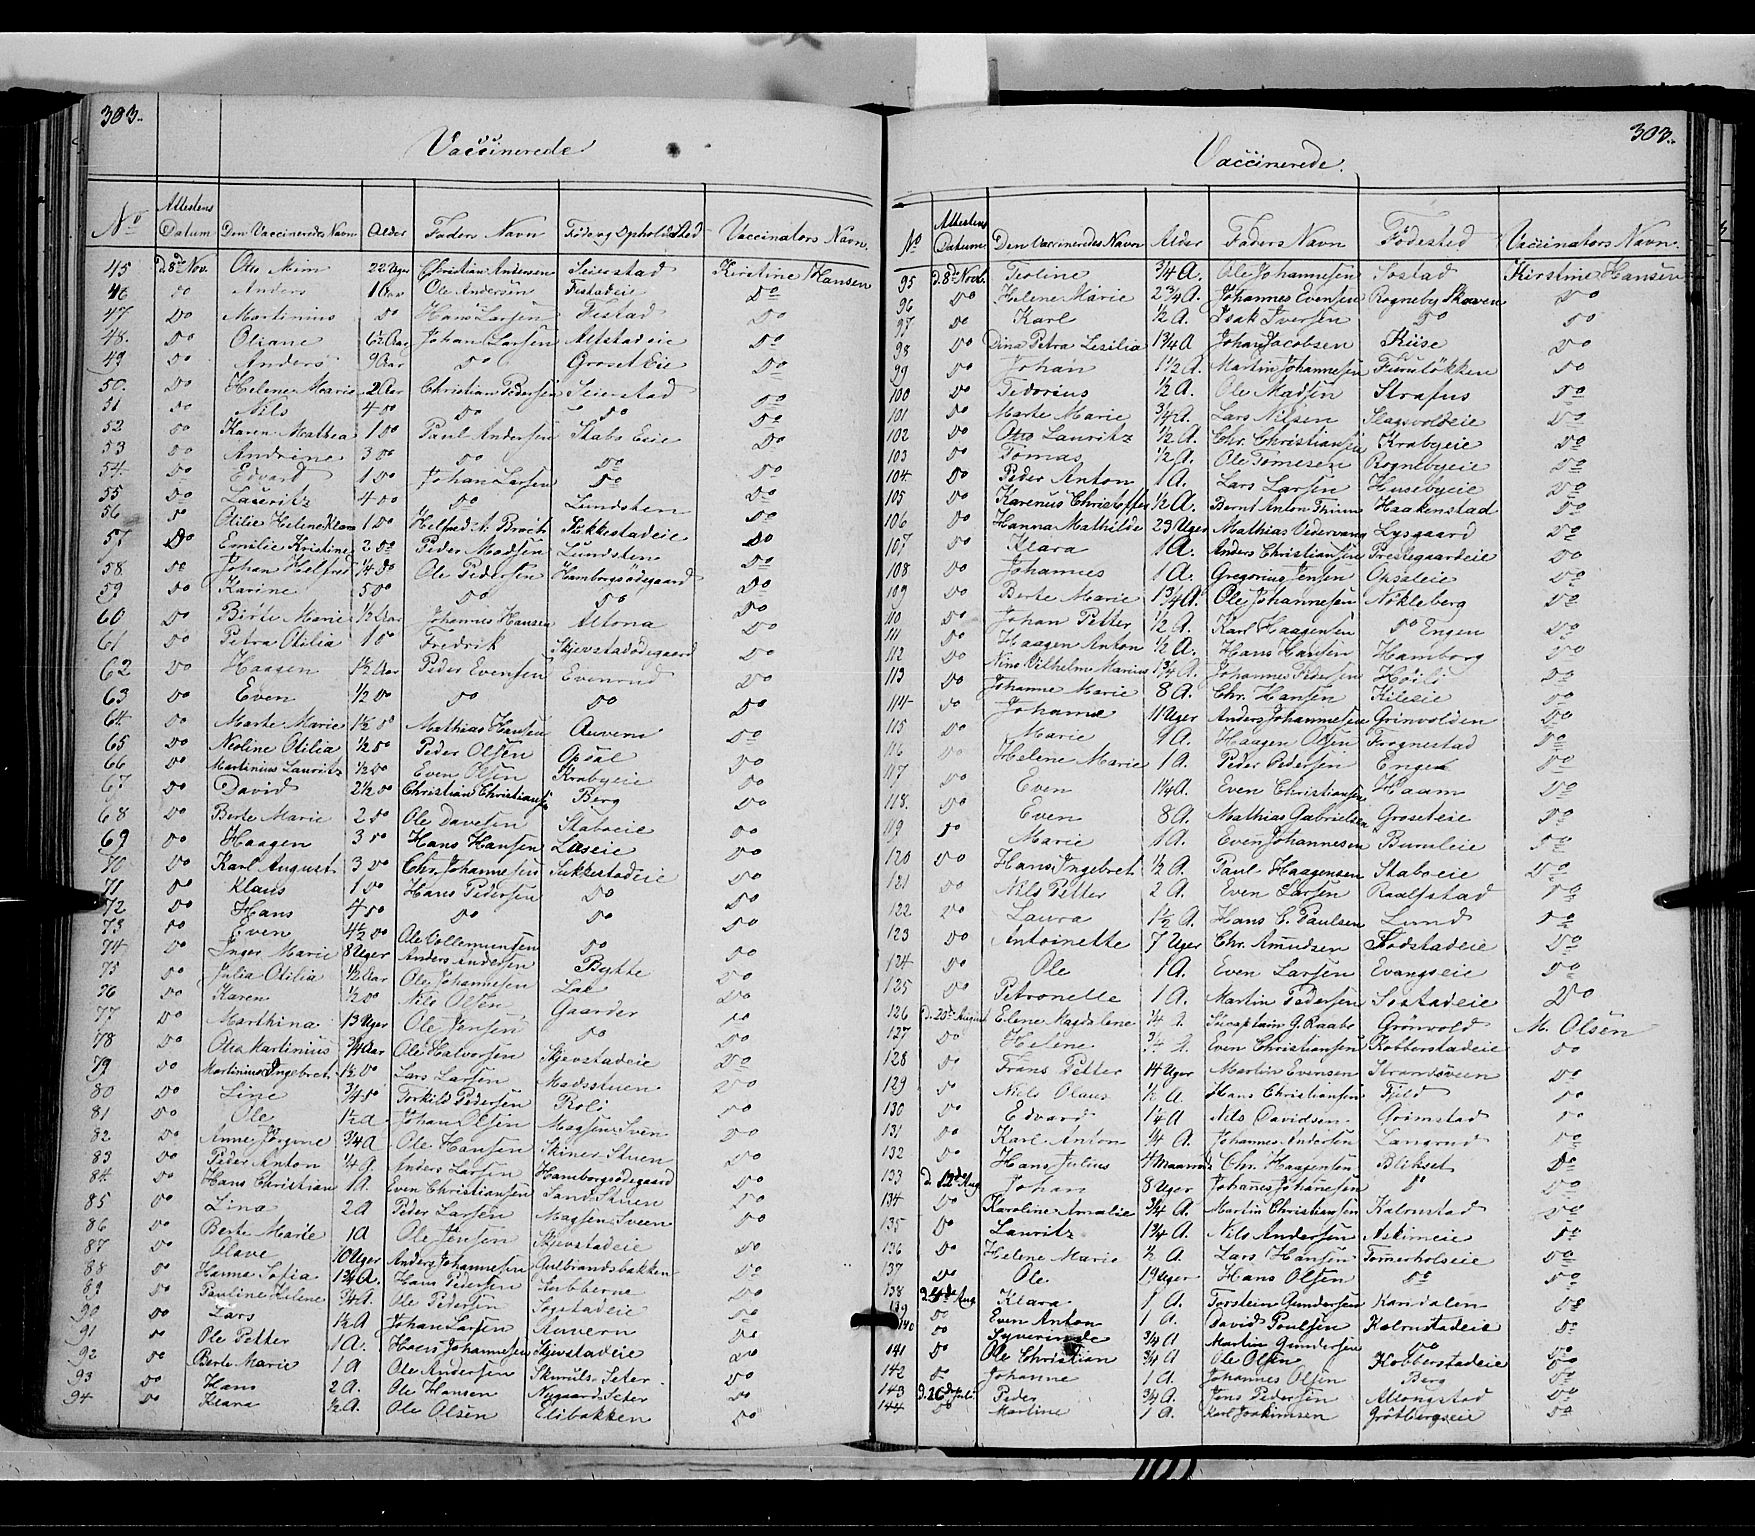 303.
Vaccinerede
No Attestens Datum Den Vaccineredes Navn Alder Faders NavnFøde og Opholds Sted Vaccinators Navn
45 d. 8de Nov. Otto Christian Andersen Seierstad Kirstine Hansen
46 do Anders 1 Aar Ole Andersen Festadeie do
47 do Martinius do Hans Larsen Festad do
48. do Oliane 6½ Aar Johan Larsen Altstadeie do
49 do Anders 9 Aar do Groset Eie do
50. do Helene Marie 2 Aar Christian Pedersen Seierstad do
51 do Nils 4 do do do do
52 do Karen Mathea 1 do Paul Andersen Stabo Eie do
53 do Andrine 3 do do do do
54 do Edvard 1 do Johan Larsen do do
55 do Lauritz 4 do do Lundsten do
56 do Otilie Helene 1 do Helfred Sukkestadeie do
57 do Emilie Kristine 2 do Peder Madsen Lundsten do
58 do Johan Helfred ¼ do Ole Pedersen Hamborgsødegaard do
59 do Karine 5 do do do do
60 do Birte Marie 1½ Aar Johannes Hansen Altona do
61 do Petra Otilia 1 do Fredrik Skjevstadødegaard do
62 do Haagen 1½ Aar Peder Evensen Evenrud do
63 do Even ½ do do do do
64 do Marte Marie 1½ do Mathias Hansen Auvern do
65 do Neoline Otilia ½ do Peder Olsen Opsal do
66 do Martinius Lauritz ½ do Even Olsen Krabyeie do
67 do David 2½ do Christian Christiansen Berg do
68 do Berte Marie 2 do Ole Davelsen Staboeie do
69 do Haagen 3 do Hans Hansen Laseie do
70 do Karl August 3 do Chr. Johannesen Sukkestadeie do
71 do Klaus 1 do Hans Pedersen do do
72 do Hans 4 do do do do
73 do Even 4½ do Ole Vollemundsen do do
74 do Inger Marie 8 Uger Anders Andersen Bykke do
75 do Julia Otilia ½ Aar Ole Johannesen Lae do
76 do Karen ½ do Nils Olsen Gaarder do
77 do Marthina 13 Uger Ole Jensen do do
78 do Otto Martinius ¾ Aar Ole Halvorsen Skjevstadeie do
79 do Martinius Ingebret 1½ do Lars Larsen Madsstuen do
80 do Line ¾ do Torkild Pedersen Roli do
81 do Ole 1½ A Johan Olsen Magsens Sven do
82 do Anne Jørgine ¾ A Ole Hansen Skiner Stuen do
83 do Peder Anton ¼ A Anders Larsen Hamborgsødegaard do
84. do Hans Christian 1 A. Even Christiansen Sand Stuen do
85 do Lina 2 A Peder Larsen Magsens Sveen do
86 do Berte Marie 1 A Ole Jensen Skjevstadeie do
87 do Olave 10 Uger Anders Johannesen Gulbrandsbakken do
88 do Hanna Sofia 1¾ A. Hans Pedersen Aubberna do
89 do Pauline Helene ¾ A. Ole Pedersen Sogstadeie do
90 do Lars 1½ A Johan Larsen Auvern do
91 do Ole Petter 1 A. Hans Johannesen Skjevstadeie do
92 do Berte Marie 1 A Ole Andersen Skuruds Seter do
93 do Hans 2 A. Ole Hansen Nygaard Seter do
94 do Klara ½ A. Ole Olsen Elibakken do
303.
Vaccinerede.
No Attestens Datum Den Vaccineredes Navn Alder Faders Navn Fødested Vaccinators Navn
95 d. 8de Novb. Teoline ¾ A. Ole Johannesen Sostad Kirstine Hansen
96 do Helene Marie 2¾ A. Johannes Evensen Rogneby Skoven do
97 do Karl ½ A. Isak Iversen do do
98 do Dina Petra Lesilia 1¾ A Johan Jacobsen Kiise do
99 do Johan 1½ A. Martin Johannesen Furuløkken do
100 do Tidorius ½ A. Ole Madsen Strafus do
101 do Marte Marie ¾ A. Lars Nilsen Slagsvoldeie do
102 do Otto Lauritz ½ A. Chr. Christiansen Krabyeie do
103 do Tomas ½ A. Ole Tomesen Rognebyeie do
104 do Peder Anton 1 A. Lars Larsen Husebyeie do
105 do Karenus Christoffer ½ A. Bernt Anton Haakenstad do
106 do Hanna Mathilde 29 Uger Mathias Vedervang Lysgaard do
107 do Klara 1 A. Anders Christiansen Prestegaardeie do
108 do Johannes 1 A. Gregorius Jensen Opsaleie do
109 do Berte Marie 1¾ A. Ole Johannesen Nøkleberg do
110 do Johan Petter ½ A. Karl Haagensen do Engen do
111 do Haagen Anton ½ A. Hans Hansen Hamborg do
112 do Nins Vilhelm Marius 1¾ A. Johannes Pedersen Høili do
113 do Johanne Marie 8 A. Chr. Hansen Kileeie do
114 do Johanne 11 Uger Anders Johannesen Grinvolden do
115 do Marie 9 A. Haagen Olsen Frognestad do
116 do Helene Marie 1 A. Peder Pedersen Engen do
117 do Even 1¼ A. Even Christiansen Haam do
118. do Even 8 A. Mathias Gabrielsen Groseteie do
119 do Marie 1 A. Even Johannesen Buruleie do
120 do Hans Ingebret ½ A. Paul Haagensen Staboeie do
121 do Nils Petter 2 A. Even Larsen Raalfstad do
122 do Laura 1½ A. Hans C. Paulsen Lund do
123 do Antoinette 7 Uger Chr. Amudsen Fodstadeie do
124 do Ole 1 A. Even Larsen Evangseie do
125 do Petronelle 1 A. Martin Pedersen Sostadeie do
126 d. 25de August Elene Magdalene ¼ A. G. Raabe Grønvold M. Olsen
127 do Helene ¾ A. Even Christiansen Kobberstadeie do
128 do Frans Petter 14 Uger Martin Evensen Strandsveen do
129 do Niels Olaus ½ A Hans Christiansen Fjeld do
130 do Edvard 1¼ A Nils Davidsen Grimstad do
131 do Karl Anton ¼ A. Johannes Andersen Langrud do
132 do Hans Julius 4 Maaned Chr. Haagensen Blikset do
133 d. 12de Aug Johan 8 Uger Johanes Johanesen do do
134 do Karoline Amalie ¾ A. Martin Christiansen Kolrustad do
135 do Lauritz 1¾ A. Nils Andersen Askimeie do
136 do Helene Marie ½ A. Lars Hansen Tømerholseie do
137 do Ole 19 Uger Hans Olsen do do
138 d. 4de Aug Klara 1 A. Torstein Gundersen Kandalen do
139 do Even Anton 1 A. David Poulsen Kolrustadeie do
140 do Syverinde ¾ A Martin Gundersen do do
141 do Ole Christian ¾ A Ole Olsen Kobberstadeie do
142 do Johanne 1 A. Johannes Olsen Berg do
143 d. 26de Juli Peder ¾ A. Jens Pedersen Allongstad do
144 do Martine 1 A. Karl Joakimsen Grøtbergseie do